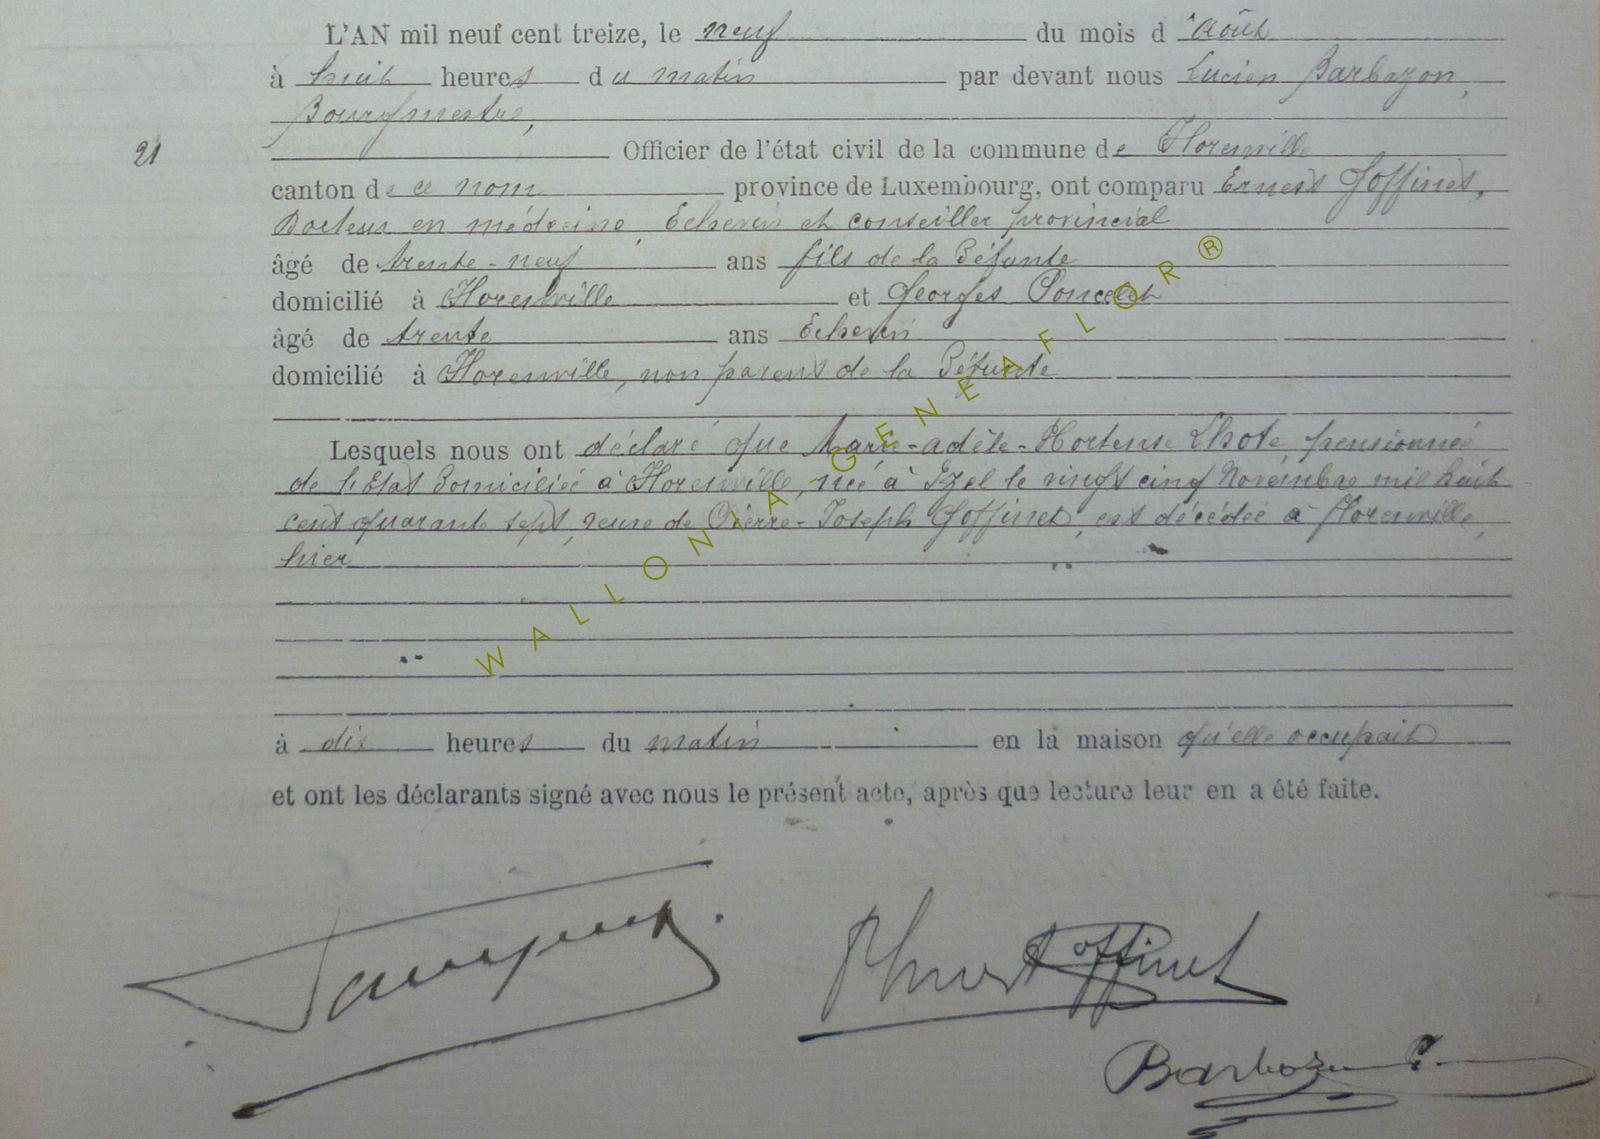 L'AN mil neuf cent treize, le neuf du mois d'Août
à huit heures du matin par devant nous Lucien Barbazon,
Bourgmestre,
21 Officier de l'état civil de la commune de Florenville
canton de ce nom province de Luxembourg, ont comparu Ernest Goffinet,
Docteur en médecine, Echevin et conseiller provincial
âgé de trente-neuf ans fils de la Défunte
domicilié à Florenville et Georges Poncelet
âgé de trente ans Echevin
domicilié à Florenville, non parent de la Défunte
Lesquels nous ont déclaré que Marie-adèle-Hortense Lhote, pensionnée
de l'Etat Domiciliée à Florenville, née à Izel le vingt cinq Novembre mil huit
cent quarante sept, veuve de Pierre-Joseph Goffinet, est décédée à Florenville,
hier
WALLONIA GENEAFLOR ®
à dix heures du matin en la maison qu'elle occupait
et ont les déclarants signé avec nous le présent acte, après que lecture leur en a été faite.
Goffinet
Barbazon